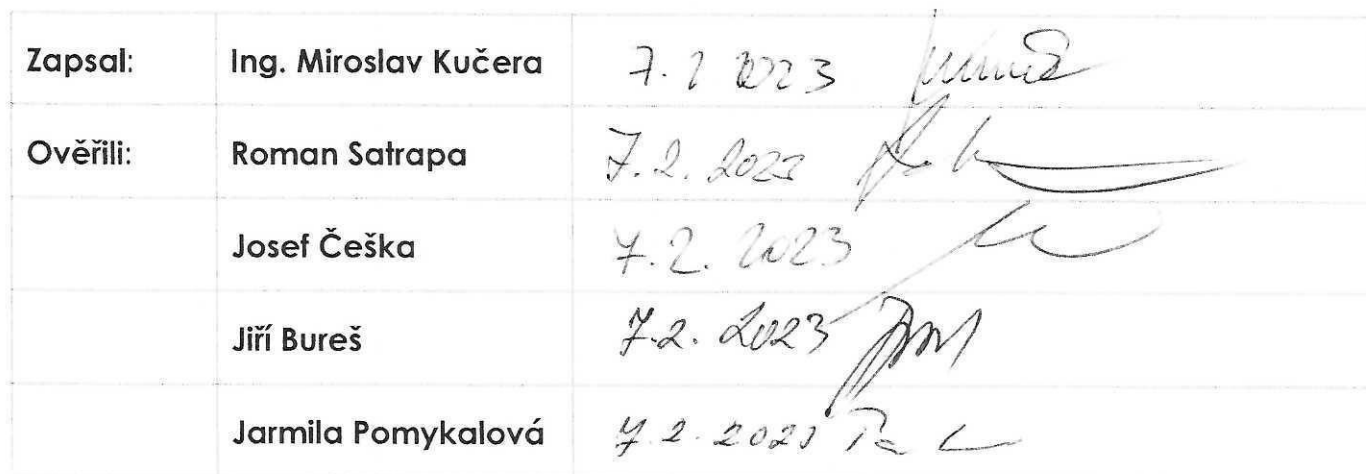 Zapsal: Ing. Miroslav Kučera 7.2 2023
Ověřili: Roman Satrapa 7.2.2023
Josef Češka 7.2.2023
Jiří Bureš 7.2.2023
Jarmila Pomykalová 7.2.2023